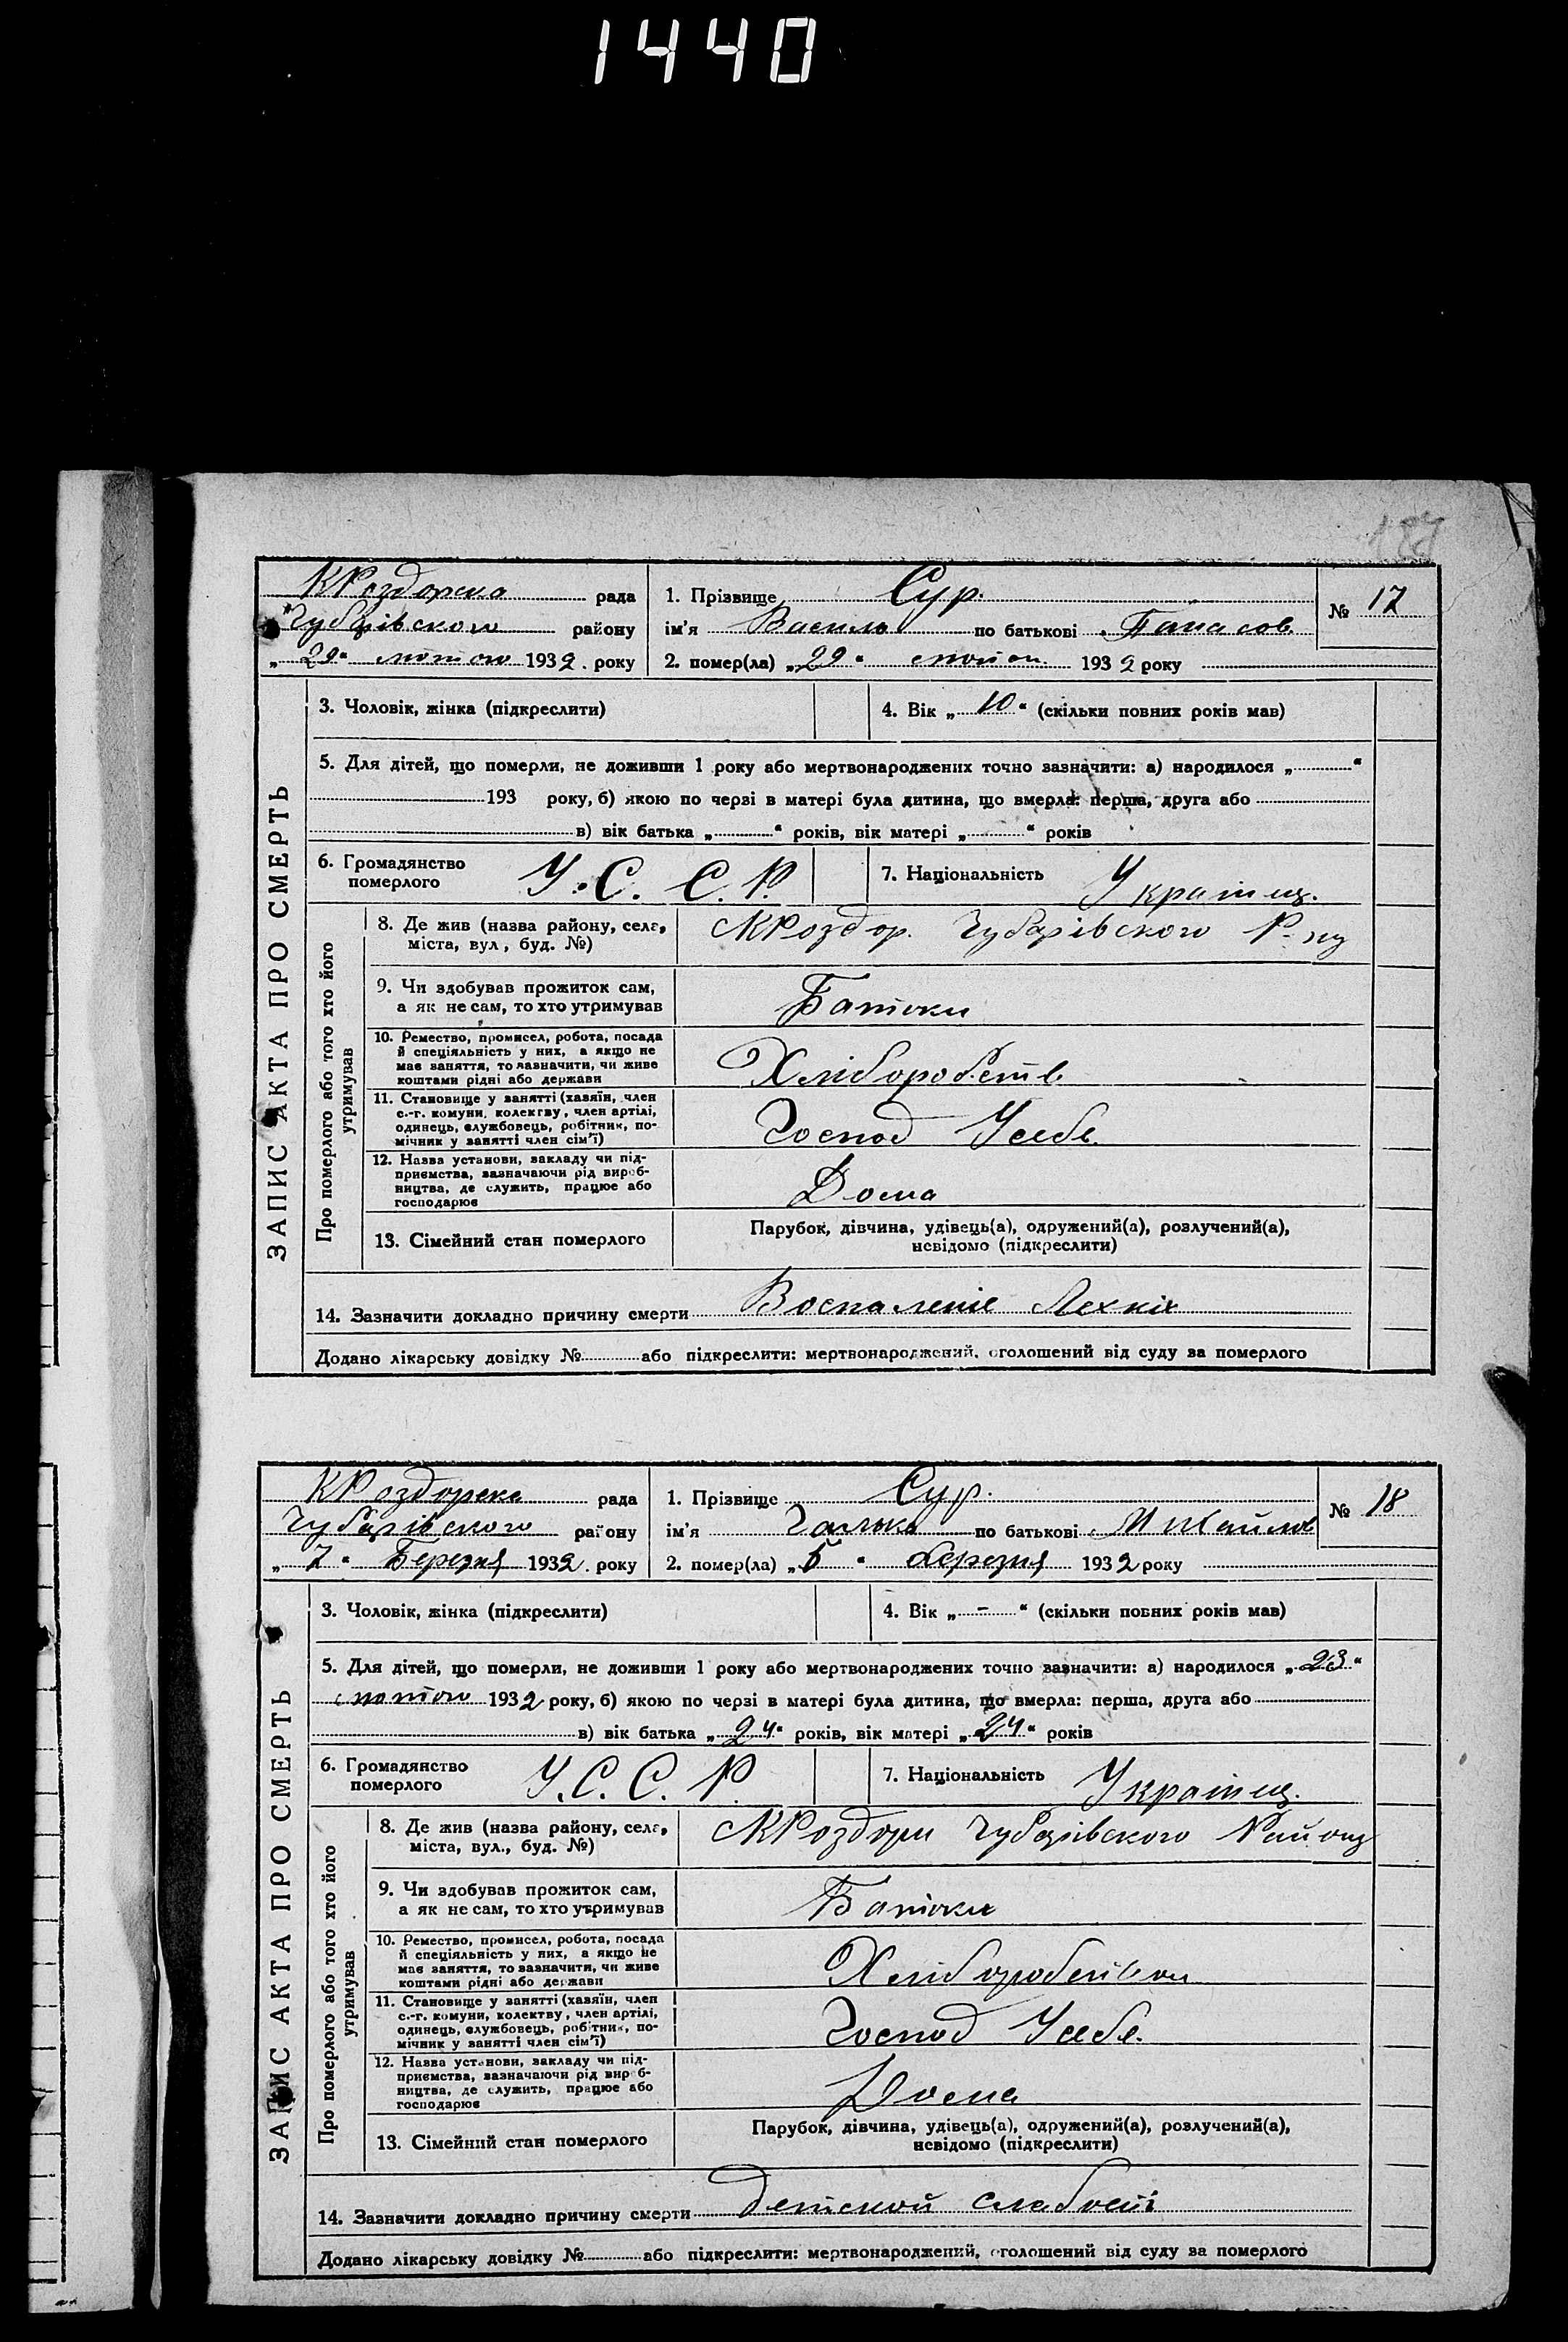 1440
187
КРоздорска рада
Чубарівского району
„29“ лютого 1932 року
1. Прізвище Сур.
ім'я Василь по батькові Панасов.
2. помер(ла) „29“ лютого 1932 року
№ 17
ЗАПИС АКТА ПРО СМЕРТЬ
3. Чоловік, жінка (підкреслити)
4. Вік „10“ (скільки повних років мав)
5. Для дітей, що померли, не доживши 1 року або мертвонароджених точно зазначити: а) народилося „ “
193 року, б) якою по черзі в матері була дитина, що вмерла: перша, друга або
в) вік батька „ “ років, вік матері „ “ років
6. Громадянство
померлого
У.С.С.Р.
7. Національність Україец.
Про померлого або того хто його
утримував
8. Де жив (назва району, села,
міста, вул., буд. №)
КРоздор. Чубарівского Р-ну
9. Чи здобував прожиток сам,
а як не сам, то хто утримував
Батьки
10. Ремество, промисел, робота, посада
й спеціяльність у них, а якщо не
має заняття, то зазначити, чи живе
коштами рідні або держави
Хліборобств
11. Становище у занятті (хазяїн, член
с.-г. комуни, колектву, член артілі,
одинець, службовець, робітник, по-
мічник у занятті член сім'ї)
Господ Усебе.
12. Назва установи, закладу чи під-
приємства, зазначаючи рід вироб-
ництва, де служить, працює або
господарює
Дома
13. Сімейний стан померлого
Парубок, дівчина, удівець(а), одружений(а), розлучений(а),
невідомо (підкреслити)
14. Зазначити докладно причину смерти Воспаленіе Лехкіх
Додано лікарську довідку № або підкреслити: мертвонароджений, оголошений від суду за померлого
КРоздорска рада
Чубарівского району
„7“ Березня 1932 року
1. Прізвище Сур.
ім'я Галька по батькові Михайлов
2. помер(ла) „5“ березня 1932 року
№ 18
ЗАПИС АКТА ПРО СМЕРТЬ
3. Чоловік, жінка (підкреслити)
4. Вік „-“ (скільки повних років мав)
5. Для дітей, що померли, не доживши 1 року або мертвонароджених точно зазначити: а) народилося „23“
лютого 1932 року, б) якою по черзі в матері була дитина, що вмерла: перша, друга або
в) вік батька „24“ років, вік матері „24“ років
6. Громадянство
померлого
У.С.С.Р.
7. Національність Україец.
Про померлого або того хто його
утримував
8. Де жив (назва району, села,
міста, вул., буд. №)
КРоздори Чубарівского Району
9. Чи здобував прожиток сам,
а як не сам, то хто утримував
Батьки
10. Ремество, промисел, робота, посада
й спеціяльність у них, а якщо не
має заняття, то зазначити, чи живе
коштами рідні або держави
Хліборобством
11. Становище у занятті (хазяїн, член
с.-г. комуни, колектву, член артілі,
одинець, службовець, робітник, по-
мічник у занятті член сім'ї)
Господ Усебе.
12. Назва установи, закладу чи під-
приємства, зазначаючи рід вироб-
ництва, де служить, працює або
господарює
Дома
13. Сімейний стан померлого
Парубок, дівчина, удівець(а), одружений(а), розлучений(а),
невідомо (підкреслити)
14. Зазначити докладно причину смерти Детской слабості
Додано лікарську довідку № або підкреслити: мертвонароджений, оголошений від суду за померлого